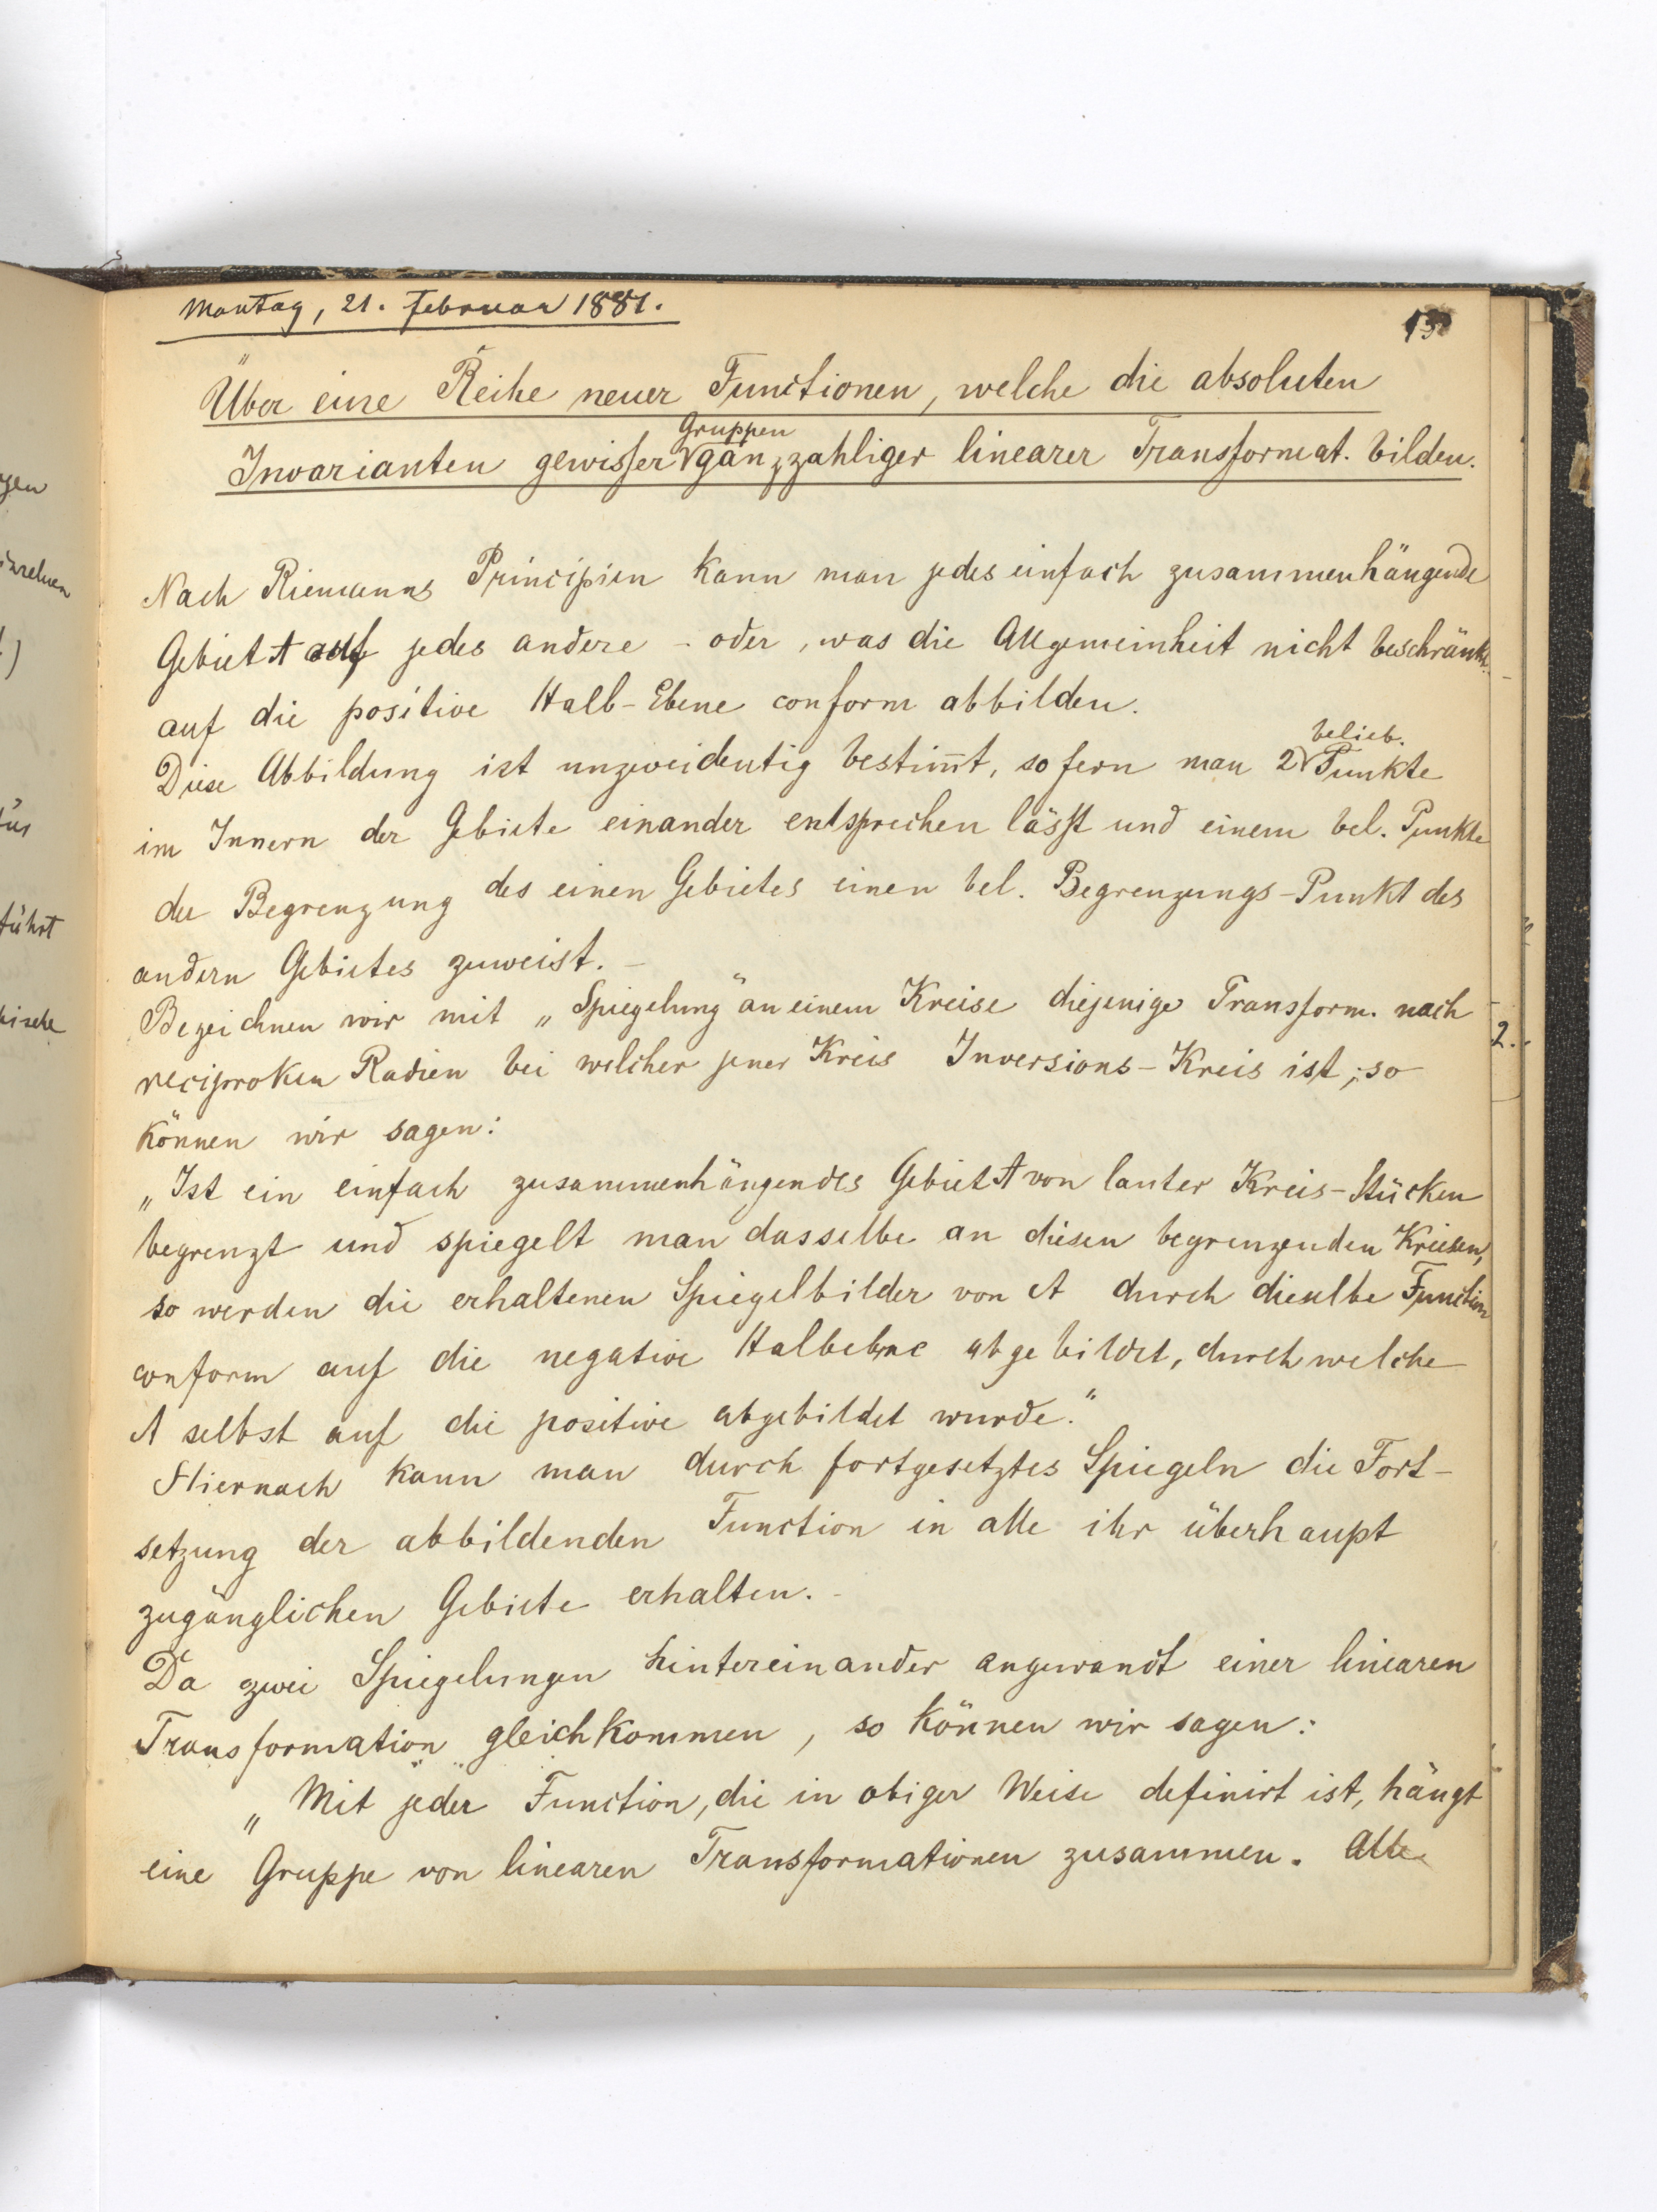 Montag, 21. Februar 1881.
Über eine Reihe neuer Functionen, welche die absoluten
Gruppen
Invarianten gewisser ganzzahliger linearer Transformat. bilden.
Nach Riemanns Principien kann man jedes einfach zusammenhängende
Gebiet A auf jedes andere - oder, was die Allgemeinheit nicht beschränkt
auf die positive Halb-Ebene conform abbilden.
belieb.
Diese Abbildung ist unzweideutig bestim̄t, sofern man 2 Punkte
im Innern der Gebiete einander entsprechen lässt und einem bel. Punkte
der Begrenzung des einen Gebietes einen bel. Begrenzungs-Punkt des
andern Gebietes zuweist. -
Bezeichnen wir mit „Spiegelung" an einem Kreise diejenige Transform. nach
reciproken Radien bei welcher jener Kreis Inversions-Kreis ist, so
können wir sagen:
„Ist ein einfach zusammenhängendes Gebiet A von lauter Kreis-Stücken
begrenzt und spiegelt man dasselbe an diesen begrenzenden Kreisen,
so werden die erhaltenen Spiegelbilder von A durch dieselbe Function
conform auf die negative Halbebene abgebildet, durch welche
A selbst auf die positive abgebildet wurde."
Hiernach kann man durch fortgesetztes Spiegeln die Fort-
setzung der abbildenden Function in alle ihr überhaupt
zugänglichen Gebiete erhalten. -
Da zwei Spiegelungen hintereinander angewandt einer linearen
Transformation gleichkommen, so können wir sagen:
„Mit jeder Function, die in obiger Weise definirt ist, hängt
eine Gruppe von linearen Transformationen zusammen. Alle
führt
2.